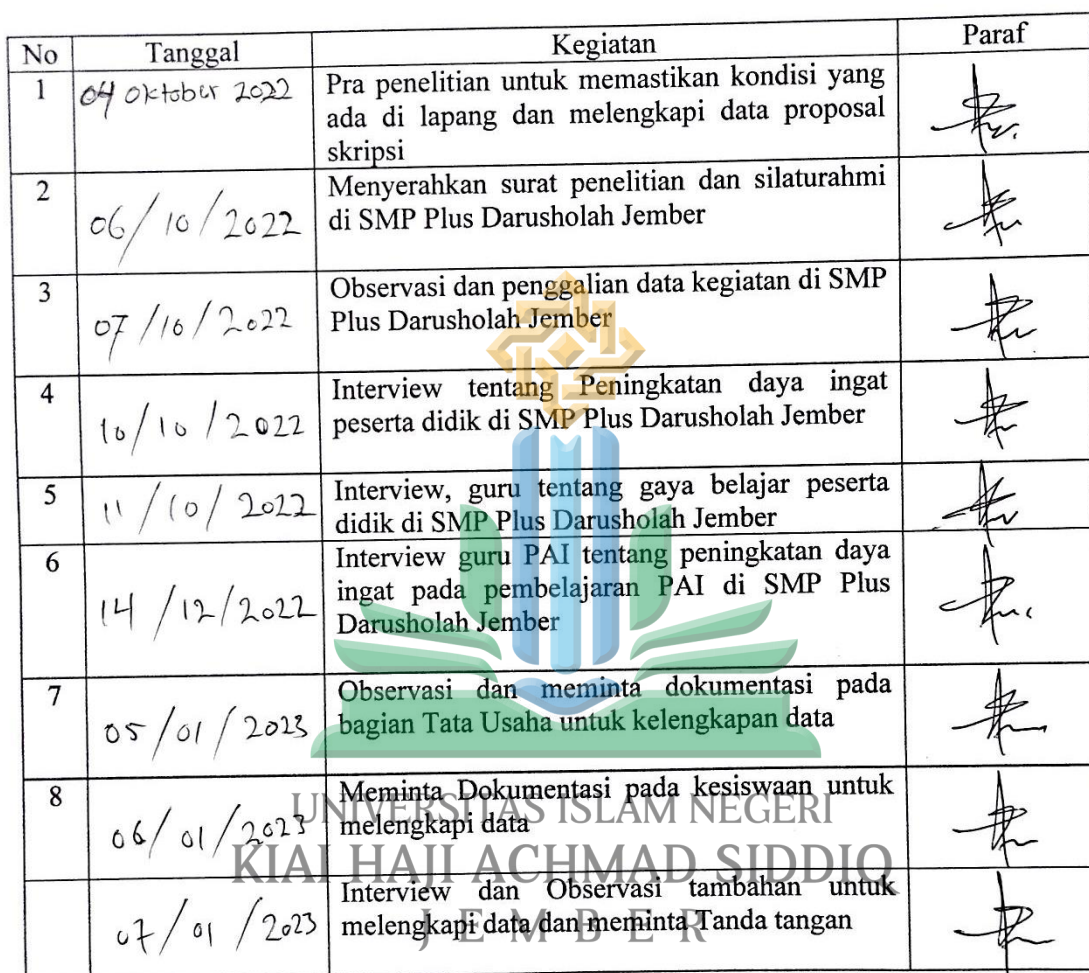 No Tanggal Kegiatan Paraf
1 04 Oktober 2022 Pra penelitian untuk memastikan kondisi yang
ada di lapang dan melengkapi data proposal
skripsi
2 06/10/2022 Menyerahkan surat penelitian dan silaturahmi
di SMP Plus Darusholah Jember
3 07/10/2022 Observasi dan penggalian data kegiatan di SMP
Plus Darusholah Jember
4 10/10/2022 Interview tentang Peningkatan daya ingat
peserta didik di SMP Plus Darusholah Jember
5 11/10/2022 Interview, guru tentang gaya belajar peserta
didik di SMP Plus Darusholah Jember
6 14/12/2022 Interview guru PAI tentang peningkatan daya
ingat pada pembelajaran PAI di SMP Plus
Darusholah Jember
7 05/01/2023 Observasi dan meminta dokumentasi pada
bagian Tata Usaha untuk kelengkapan data
8 06/01/2023 Meminta Dokumentasi pada kesiswaan untuk
melengkapi data
07/01/2023 Interview dan Observasi tambahan untuk
melengkapi data dan meminta Tanda tangan
UNIVERSITAS ISLAM NEGERI
KIAI HAJI ACHMAD SIDDIQ
JEMBER